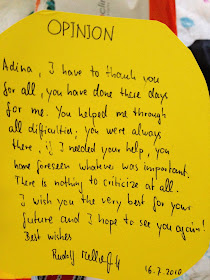 OPINION
Adina, I have to thank you
for all, you have done these days
for me. You helped me through
all difficulties, you were always
there, if I needed your help, you
have foreseen whatever was important.
There is nothing to criticize at all...
I wish you the very best for your
future and I hope to see you again!
Best wishes
Rudolf
16.7.2010